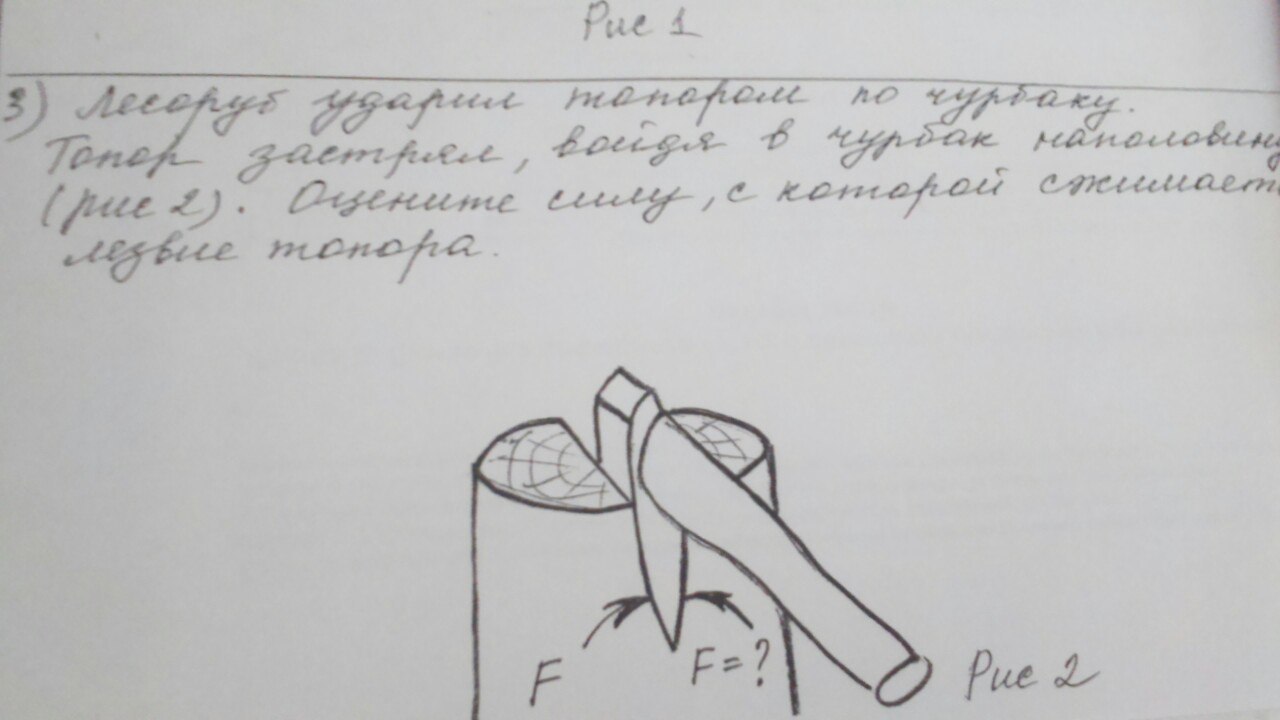 Рис 1
3) Лесоруб ударил топором по чурбаку.
Топор застрял, войдя в чурбак наполовину
(рис 2). Оцените силу, с которой сжимает
лезвие топора.
F
F=?
Рис 2